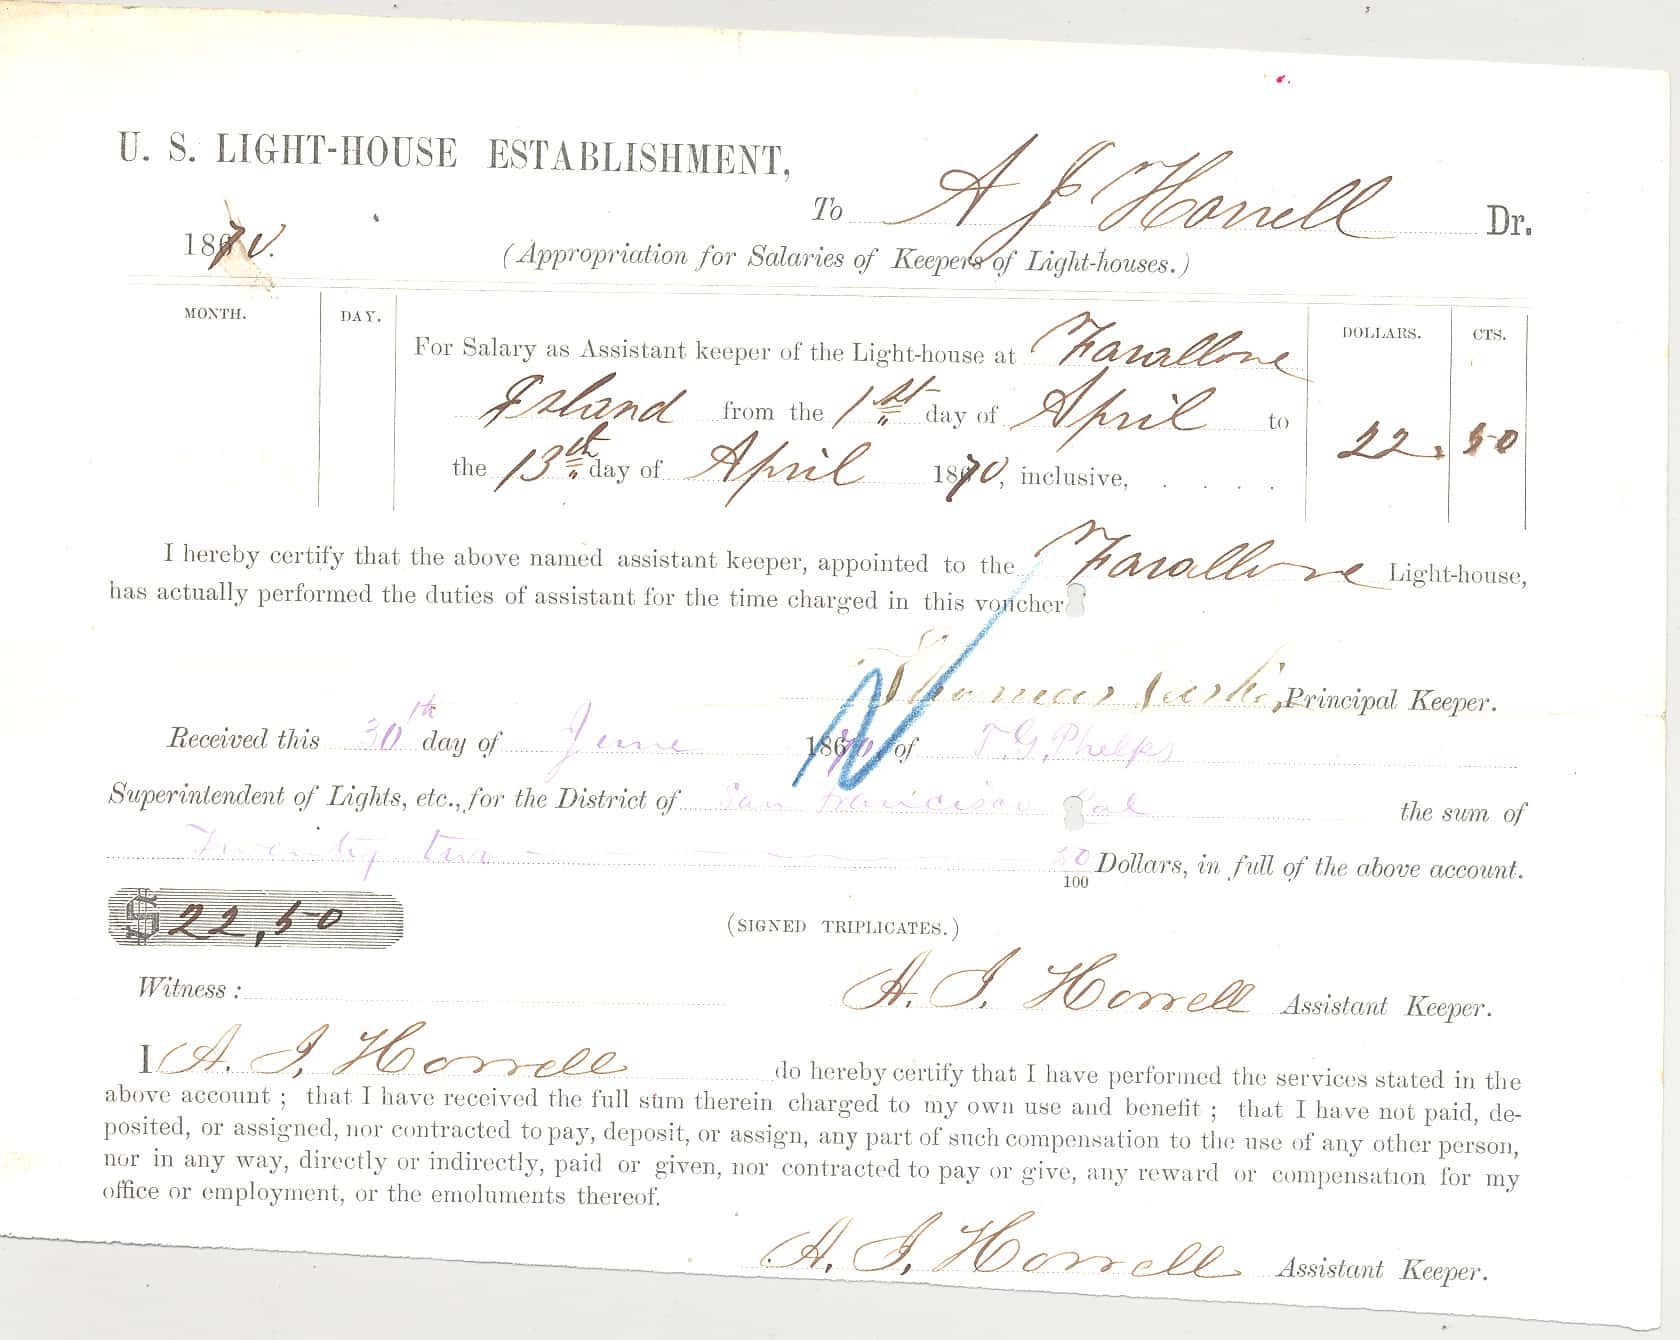 U. S. LIGHT-HOUSE ESTABLISHMENT,
To A J Horrell Dr.
1870.
(Appropriation for Salaries of Keepers of Light-houses.)
MONTH. DAY. DOLLARS. CTS.
For Salary as Assistant keeper of the Light-house at Farallone
Island from the 1st day of April to
the 13th day of April 1870, inclusive, . . . . 22. 50
I hereby certify that the above named assistant keeper, appointed to the Farallone Light-house,
has actually performed the duties of assistant for the time charged in this voucher
Thomas Principal Keeper.
Received this 30th day of June 1870 of T. G. Phelps
Superintendent of Lights, etc., for the District of San Francisco Cal the sum of
Twenty two 50/100 Dollars, in full of the above account.
$ 22,50
(SIGNED TRIPLICATES.)
Witness : A. J. Horrell Assistant Keeper.
I A. J. Horrell do hereby certify that I have performed the services stated in the
above account ; that I have received the full sum therein charged to my own use and benefit ; that I have not paid, de-
posited, or assigned, nor contracted to pay, deposit, or assign, any part of such compensation to the use of any other person,
nor in any way, directly or indirectly, paid or given, nor contracted to pay or give, any reward or compensation for my
office or employment, or the emoluments thereof.
A. J. Horrell Assistant Keeper.